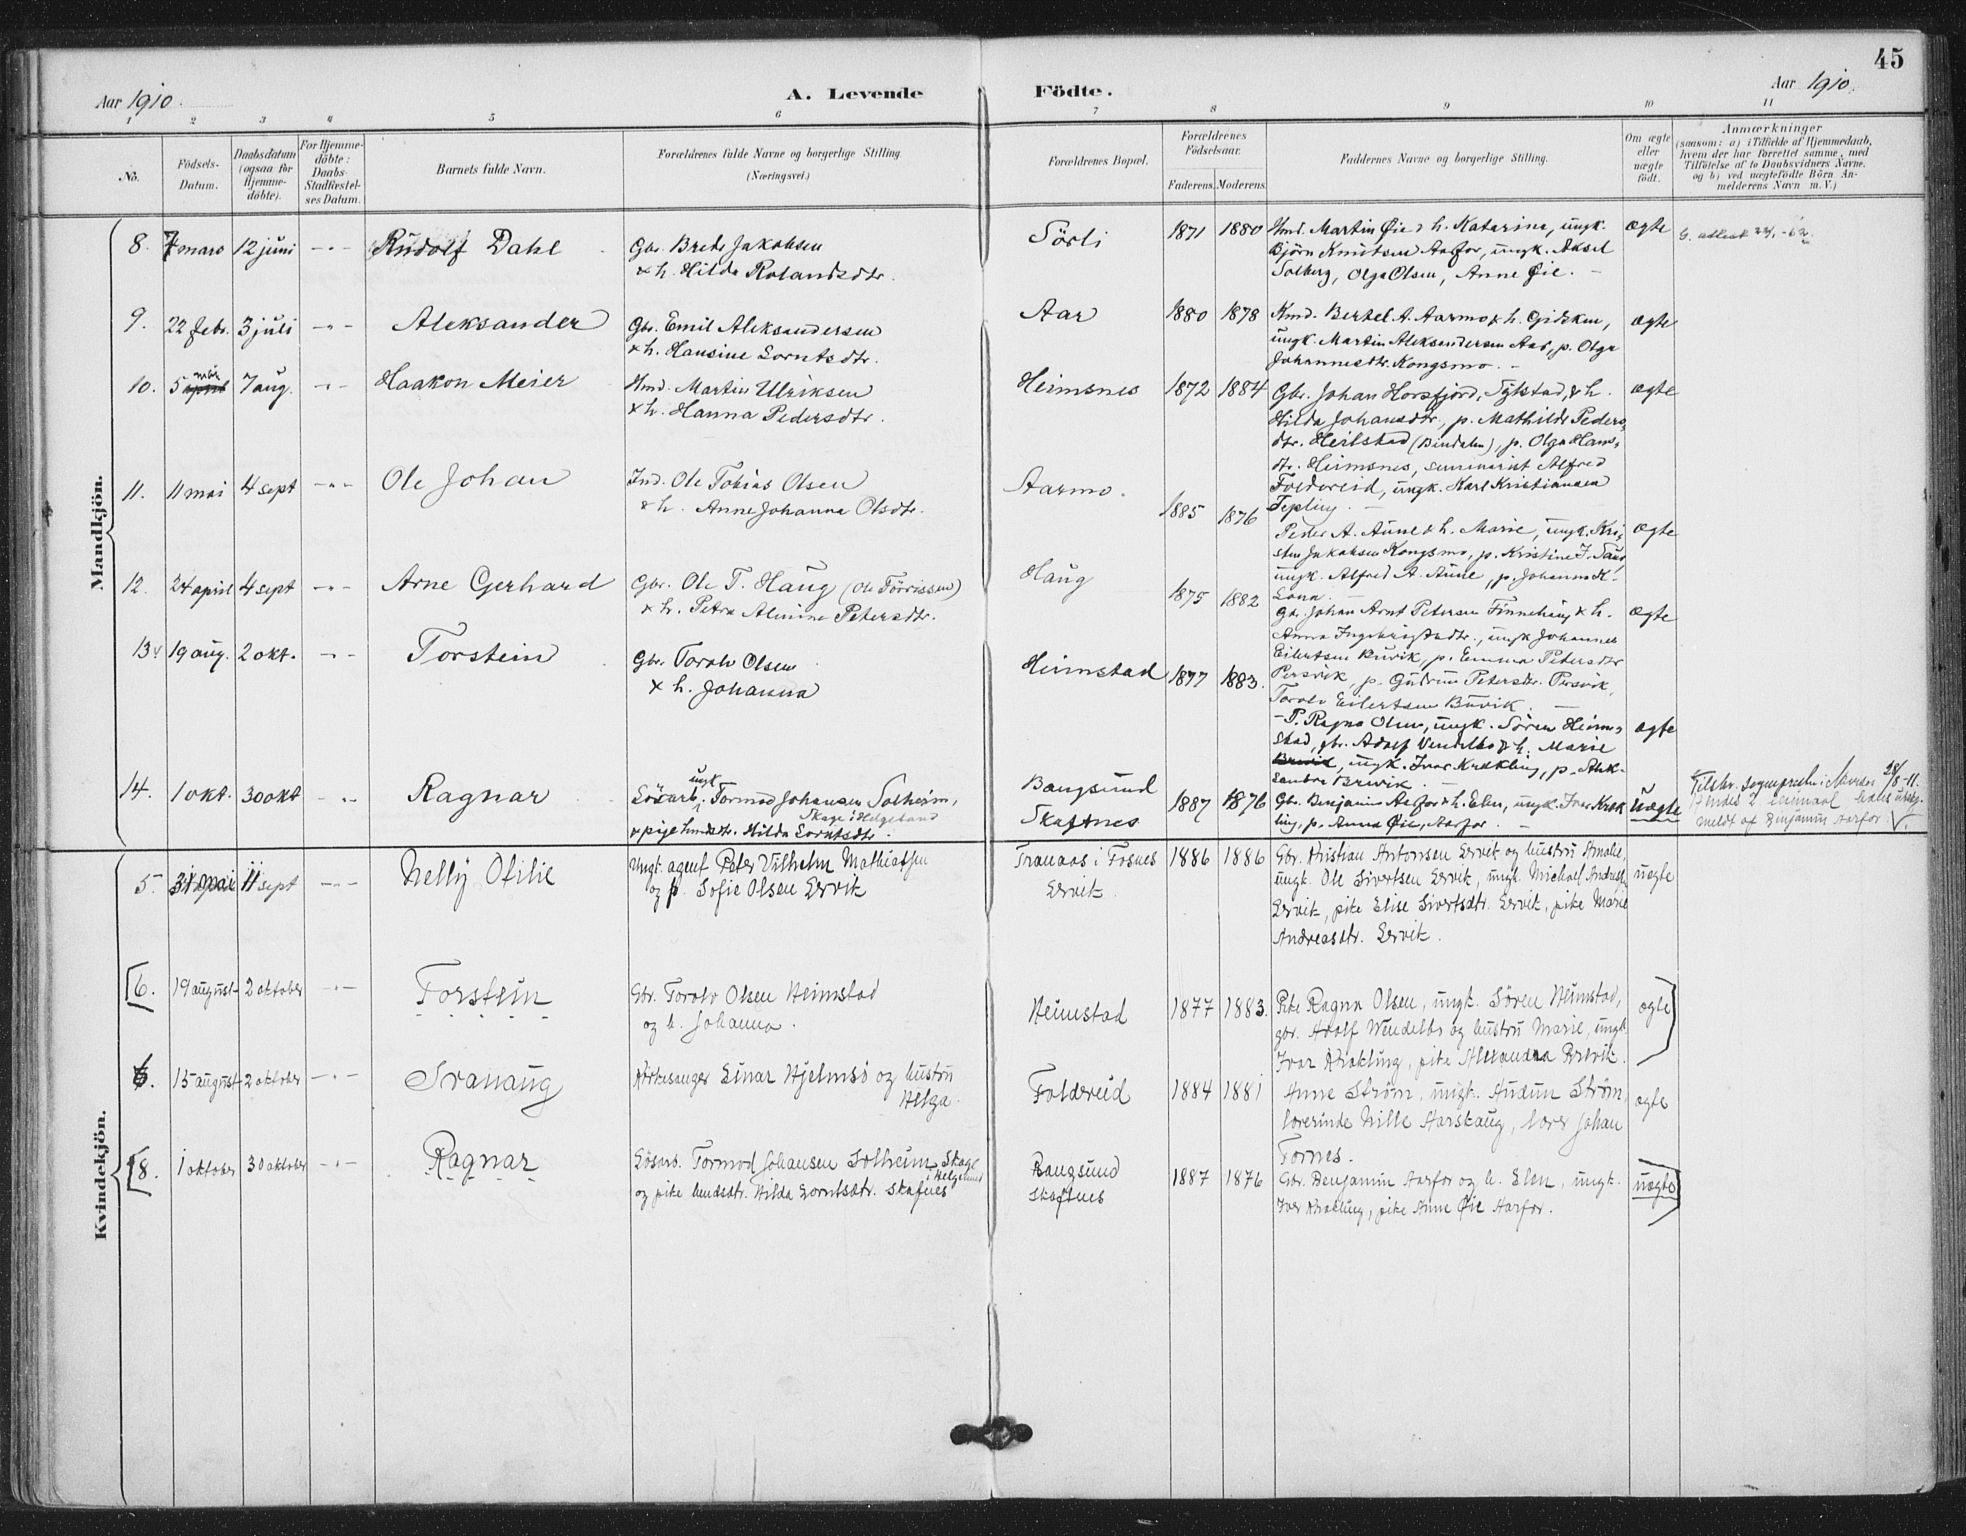 45
Aar 1910.
A. Levende
Födte.
Aar 1910.
1 2 3 4 5 6 7 8 9 10 11
No.
Födsels-
Datum.
Daabsdatum
(ogsaa for
Hjemme-
döbte).
For Hjemme-
döbte:
Daabs-
Stadfæstel-
ses Datum.
Barnets fulde Navn.
Forældrenes fulde Navne og borgerlige Stilling
(Næringsvei.)
Forældrenes Bopæl.
Forældrenes
Födselsaar.
Faderens. Moderens.
Faddernes Navne og borgerlige Stilling.
Om ægte
eller
uægte
födt.
Anmærkninger
(saasom: a) i Tilfælde af Hjemmedaab,
hvem der har forrettet samme, med
Tilföielse af to Daabsvidners Navne.
og b) ved uægtefödte Börn An-
melderens Navn m. V.)
Mandkjön.
8. 7 mars 12 juni - " - Rudolf Dahl
Gbr. Brede Jakobsen
& h. Hilda Rolandsdtr.
Sörli 1871 1880
Kmd. Martin Øie & h. Katarina, ungk.
Björn Knutsen Aarfor, ungk. Aksel
Solberg, Olga Olsen, Anne Øie. -
ægte
9. 22 febr. 3 juli - " - Aleksander
Gbr. Emil Aleksandersen
& h. Hansine Lorntsdtr.
Aar 1880 1878
Kmd. Bertel A. Aarmo & h. Gidsken,
ungk. Martin Aleksandersen Aar, p. Olga
Johannesdtr. Kongsmo. -
ægte
10. 5 april 7 aug. - " - Haakon Meier
Kmd. Martin Ulriksen
& h. Hanna Pedersdtr.
Heimsnes 1872 1884
Gbr. Johan Horsfjord, & h.
Hilda Johansdtr., p. Mathilde Peders-
dtr. Heilstad (Bindalen), p. Olga Hans-
dtr. Heimsnes, seminarist Alfred
Foldereid, ungk. Karl Kristiansen
Tepling. -
ægte
11. 11 mai 4 sept - " - Ole Johan
Ind. Ole Tobias Olsen
& h. Anne Johanna Olsdtr.
Aarmo. 1885 1876
Peder A. Aune & h. Marie, ungk. Kri-
sten Jakobsen Kongsmo, p. Kristine J.
ungk. Alfred A. Aune, p. Johanna K.
ægte
12. 24 april 4 sept - " - Arne Gerhard
Gbr. Ole T. Haug (Ole Törrissen)
& h. Petra Almine Petersdtr.
Haug 1875 1882
Gbr. Johan Arnt Petersen Finnehaug & h.
Anna Ingebrigtsdtr., ungk Johannes
Eilertsen Buvik, p. Emma Petersdtr
Persvik, p. Gudrun Petersdtr. Persvik,
Torolv Eilertsen Buvik. -
ægte
13. 19 aug. 2 okt. - " - Torstein
Gbr. Torolv Olsen
& h. Johanna
Heimstad 1877 1883.
- P. Ragna Olsen, ungk. Sören Heim-
stad, gbr. Adolf Vendelbo & h. Marie
ungk. Ivar Krækling, p. Alek-
sandra Brevik. -
ægte
14. 1 okt. 30 okt - " - Ragnar
Lösarb. ungk Tormod Johansen Solheim,
Skage i Helgeland
& pige hmdsdtr. Hilda Lorntsdtr.
Bangsund
Skaftnes
1887 1876
Gbr. Benjamin Aarfor & h. Elen, ungk. Ivar Kræk-
ling, p. Anna Øie, Aarfor. -
uægte
meldt af Benjamin Aarfor. V.
Kvindekjön.
5. 31 mai 11 sept - " - Nelly Otilie
Ungk. agent Peter Vilhelm Mathiassen
og p. Sofie Olsen Eervik
Tranaas i Fosnes
Eervik
1886 1886
Gbr. Kristian Antonsen Eervik og hustru Amalie,
ungk. Ole Sivertsen Eervik, ungk. Michael Andreassen
Eervik, pike Elise Sivertsdtr. Eervik, pike Marie
Andreasdtr. Eervik.
uægte
[6. 19 august 2 oktober - " - Torstein
Gbr. Torolv Olsen Heimstad
og h. Johanna.
Heimstad 1877 1883.
Pike Ragna Olsen, ungk. Sören Heimstad,
gbr. Adolf Vendelbo og hustru Marie, ungk.
Ivar Krækling, pike Alexandra Brevik.
ægte
6. 15 august 2 oktober - " - Tranaug
Kirkesanger Einar Hjelmsö og hustru
Helga.
Foldereid 1884 1881
Anne Ström, ungk. Audun Ström,
lærerinde Nille Harskaug, lærer Johan
Fornes.
ægte
[8. 1 oktober 30 oktober - " - Ragnar
Lösarb. Tormod Johansen Solheim, Skage
i Helgeland
og pike hmdsdtr. Hilda Lorntsdtr. Skafnes
Bangsund
Skaftnes
1887 1876
Gbr. Benjamin Aarfor og h. Elen, ungk.
Iver Krækling, pike Anne Øie Aarfor.
uægte